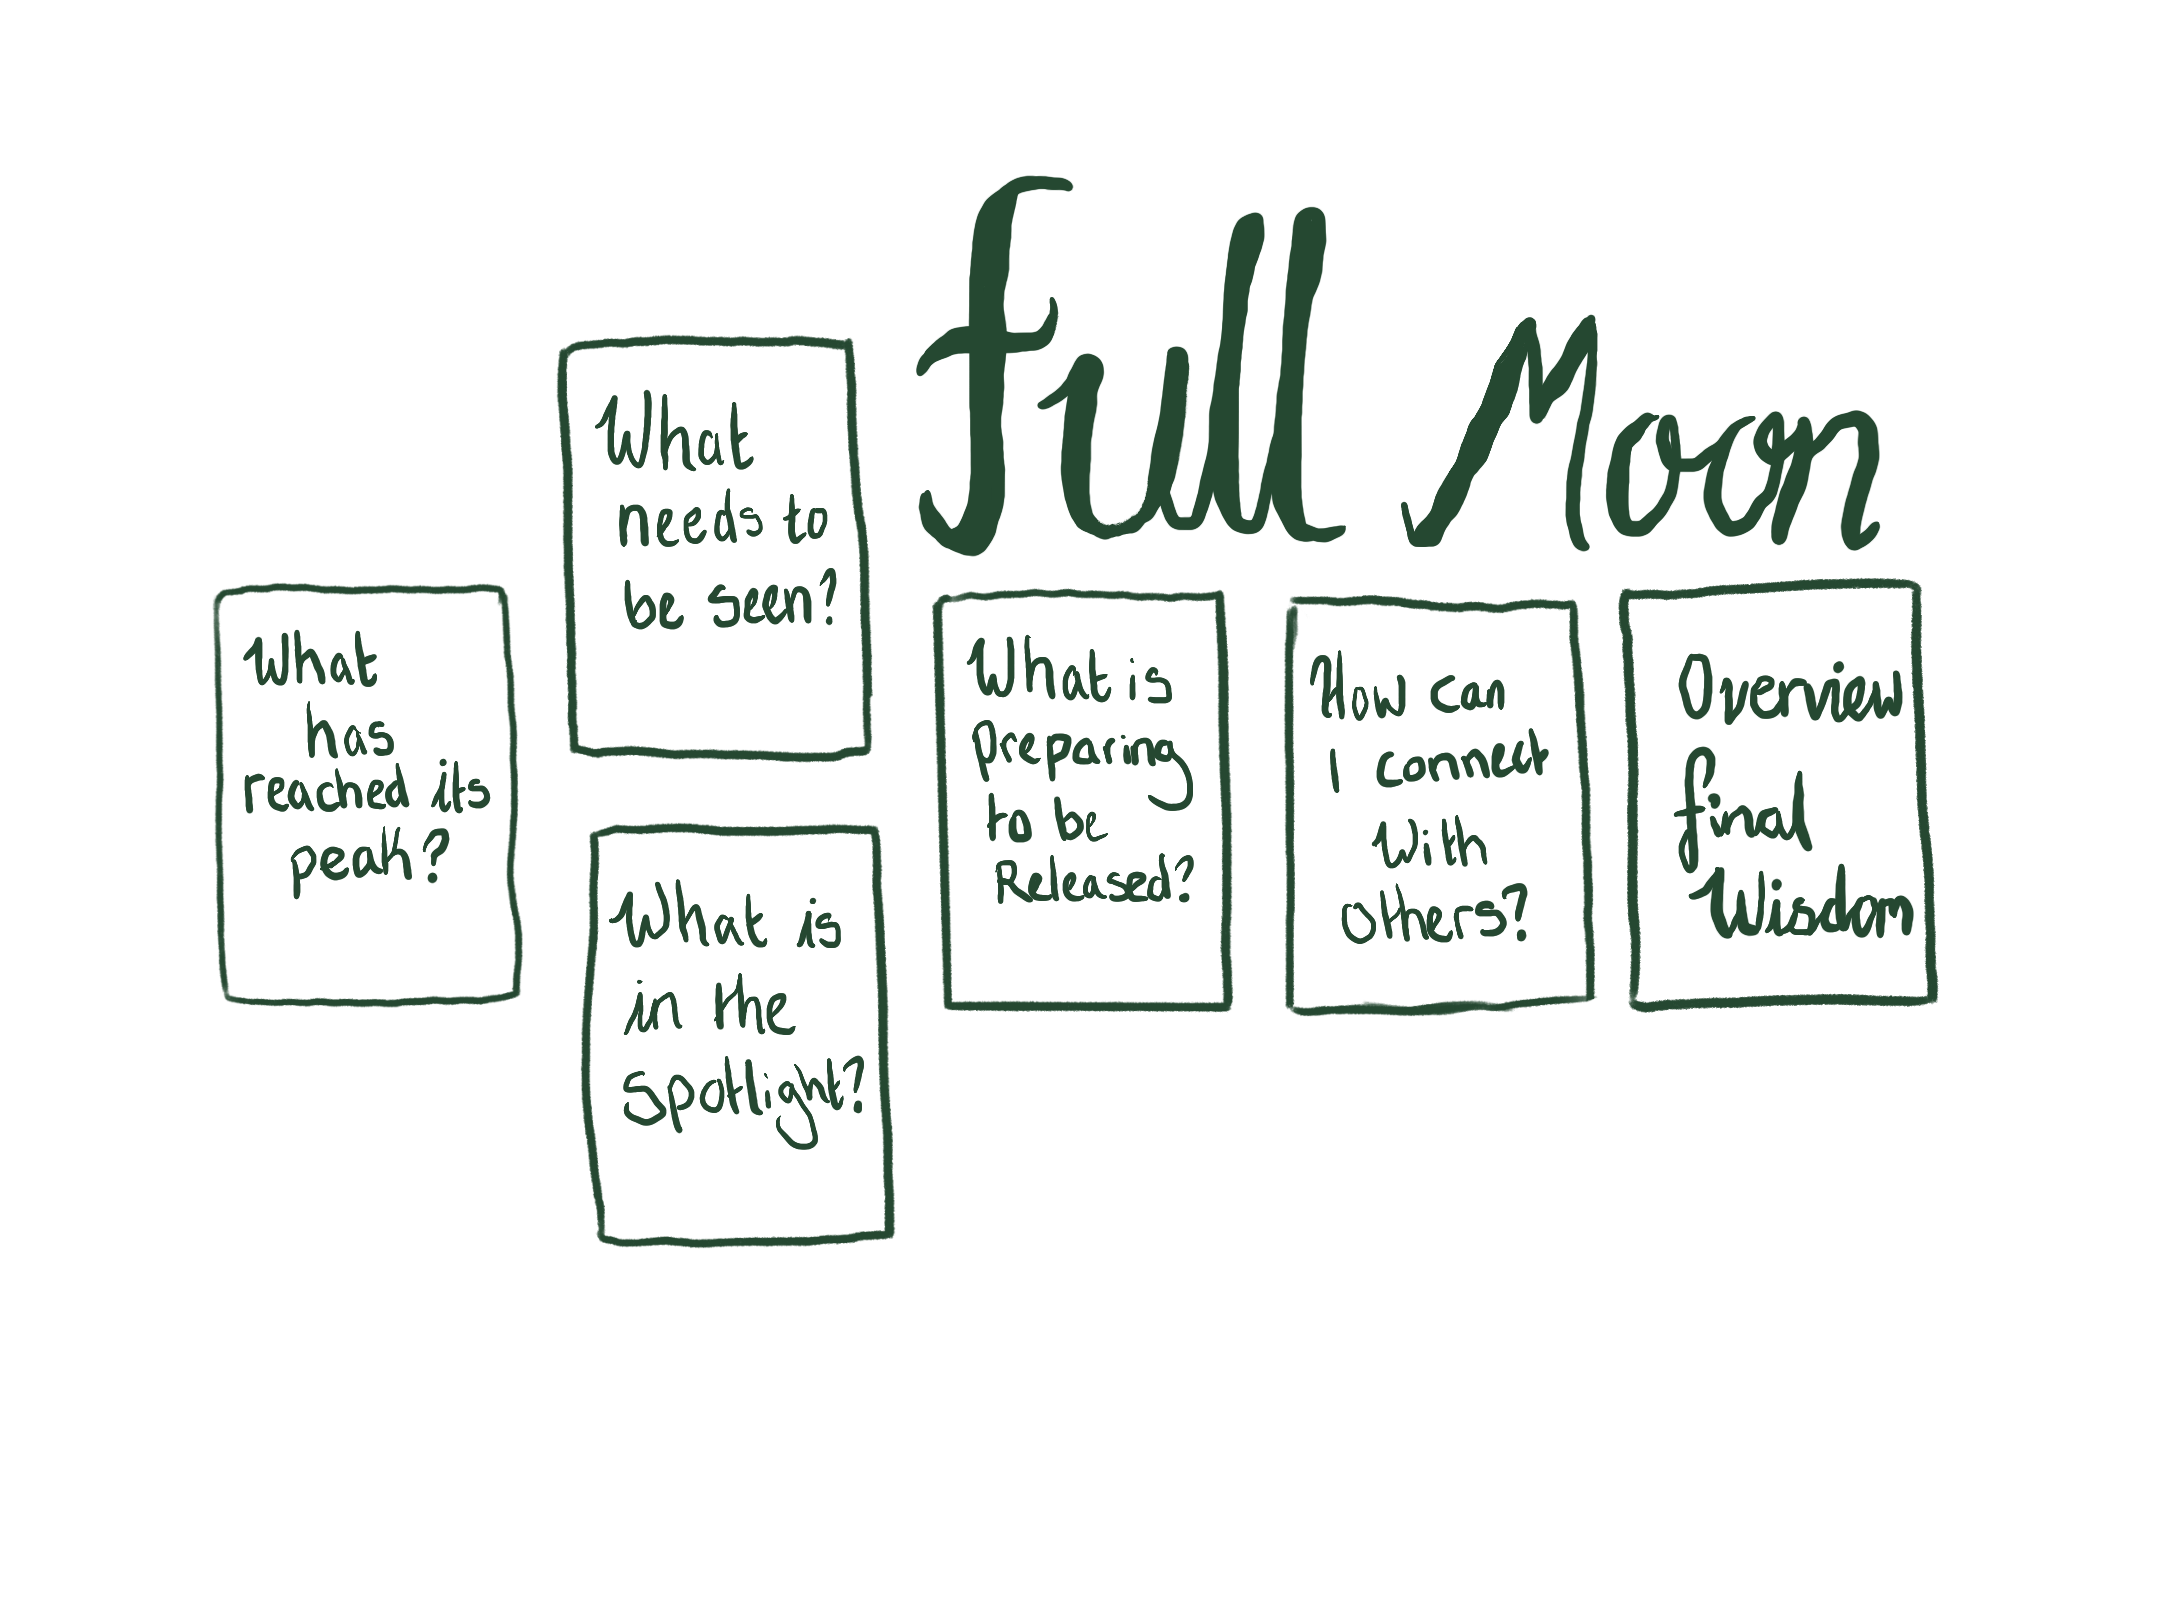 Full Moon
What
has
reached its
peak?
What
needs to
be seen?
What is
in the
Spotlight?
What is
preparing
to be
Released?
How can
I connect
with
others?
Overview
final
Wisdom